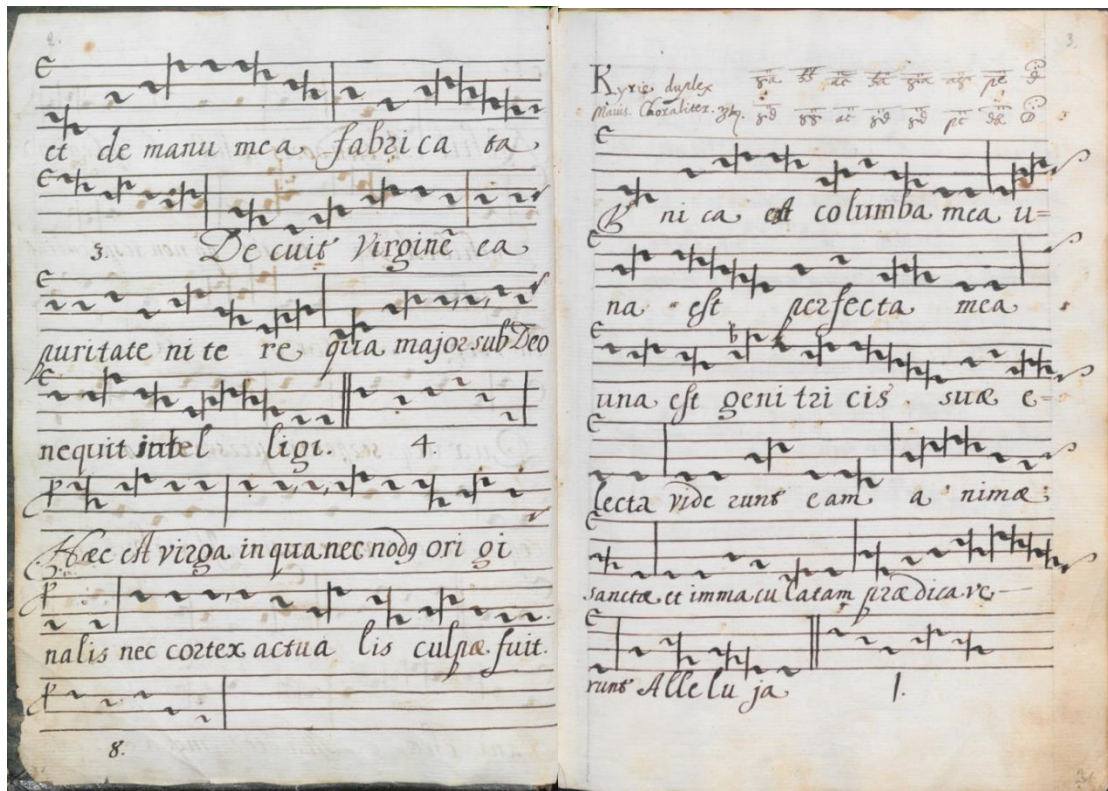 2.
et de manu mea fabrica ta
3. Decuit Virginē ea
puritate ni te re qua major sub Deo
nequit intel ligi. 4.
Hæc est virga in qua nec nodꝯ ori gi
nalis nec cortex actua lis culpæ fuit.
8.
3.
Kyrie duplex
Maius. Choraliter.
ni ca est columba mea u=
na est perfecta mea
una est geni tri cis suæ e=
lecta vide runt eam a nimæ
sanctæ et immaculatam prædicave
runt Allelu ja 1.